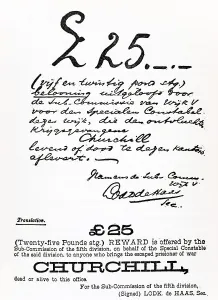 £ 25.—.—
(vijf en twintig pond stg)
belooning uitgeloofd door
de Sub. Commissie van Wijk V
voor den Specialen Constabel
dezer wijk, die den ontvluchte
Krijgsgevangene
Churchill
levend of dood te dezer kantore
aflevert.
Namens de Sub. Comm.
Wijk V
Lodk de Haas
Sec.
Translation.
£25
(Twenty-five Pounds stg.) REWARD is offered by the
Sub-Commission of the fifth division, on behalf of the Special Constable
of the said division, to anyone who brings the escaped prisoner of war
CHURCHILL,
dead or alive to this office.
For the Sub-Commission of the fifth division,
(Signed) LODK. de HAAS, Sec.